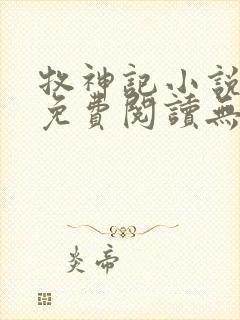 牧神記小說
免費閱讀無
炎帝